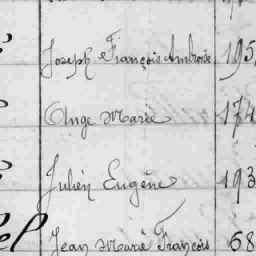 Joseph François Ambroise 195
Ange Marie 174
Julien Eugène 193
Jean Marie François 68